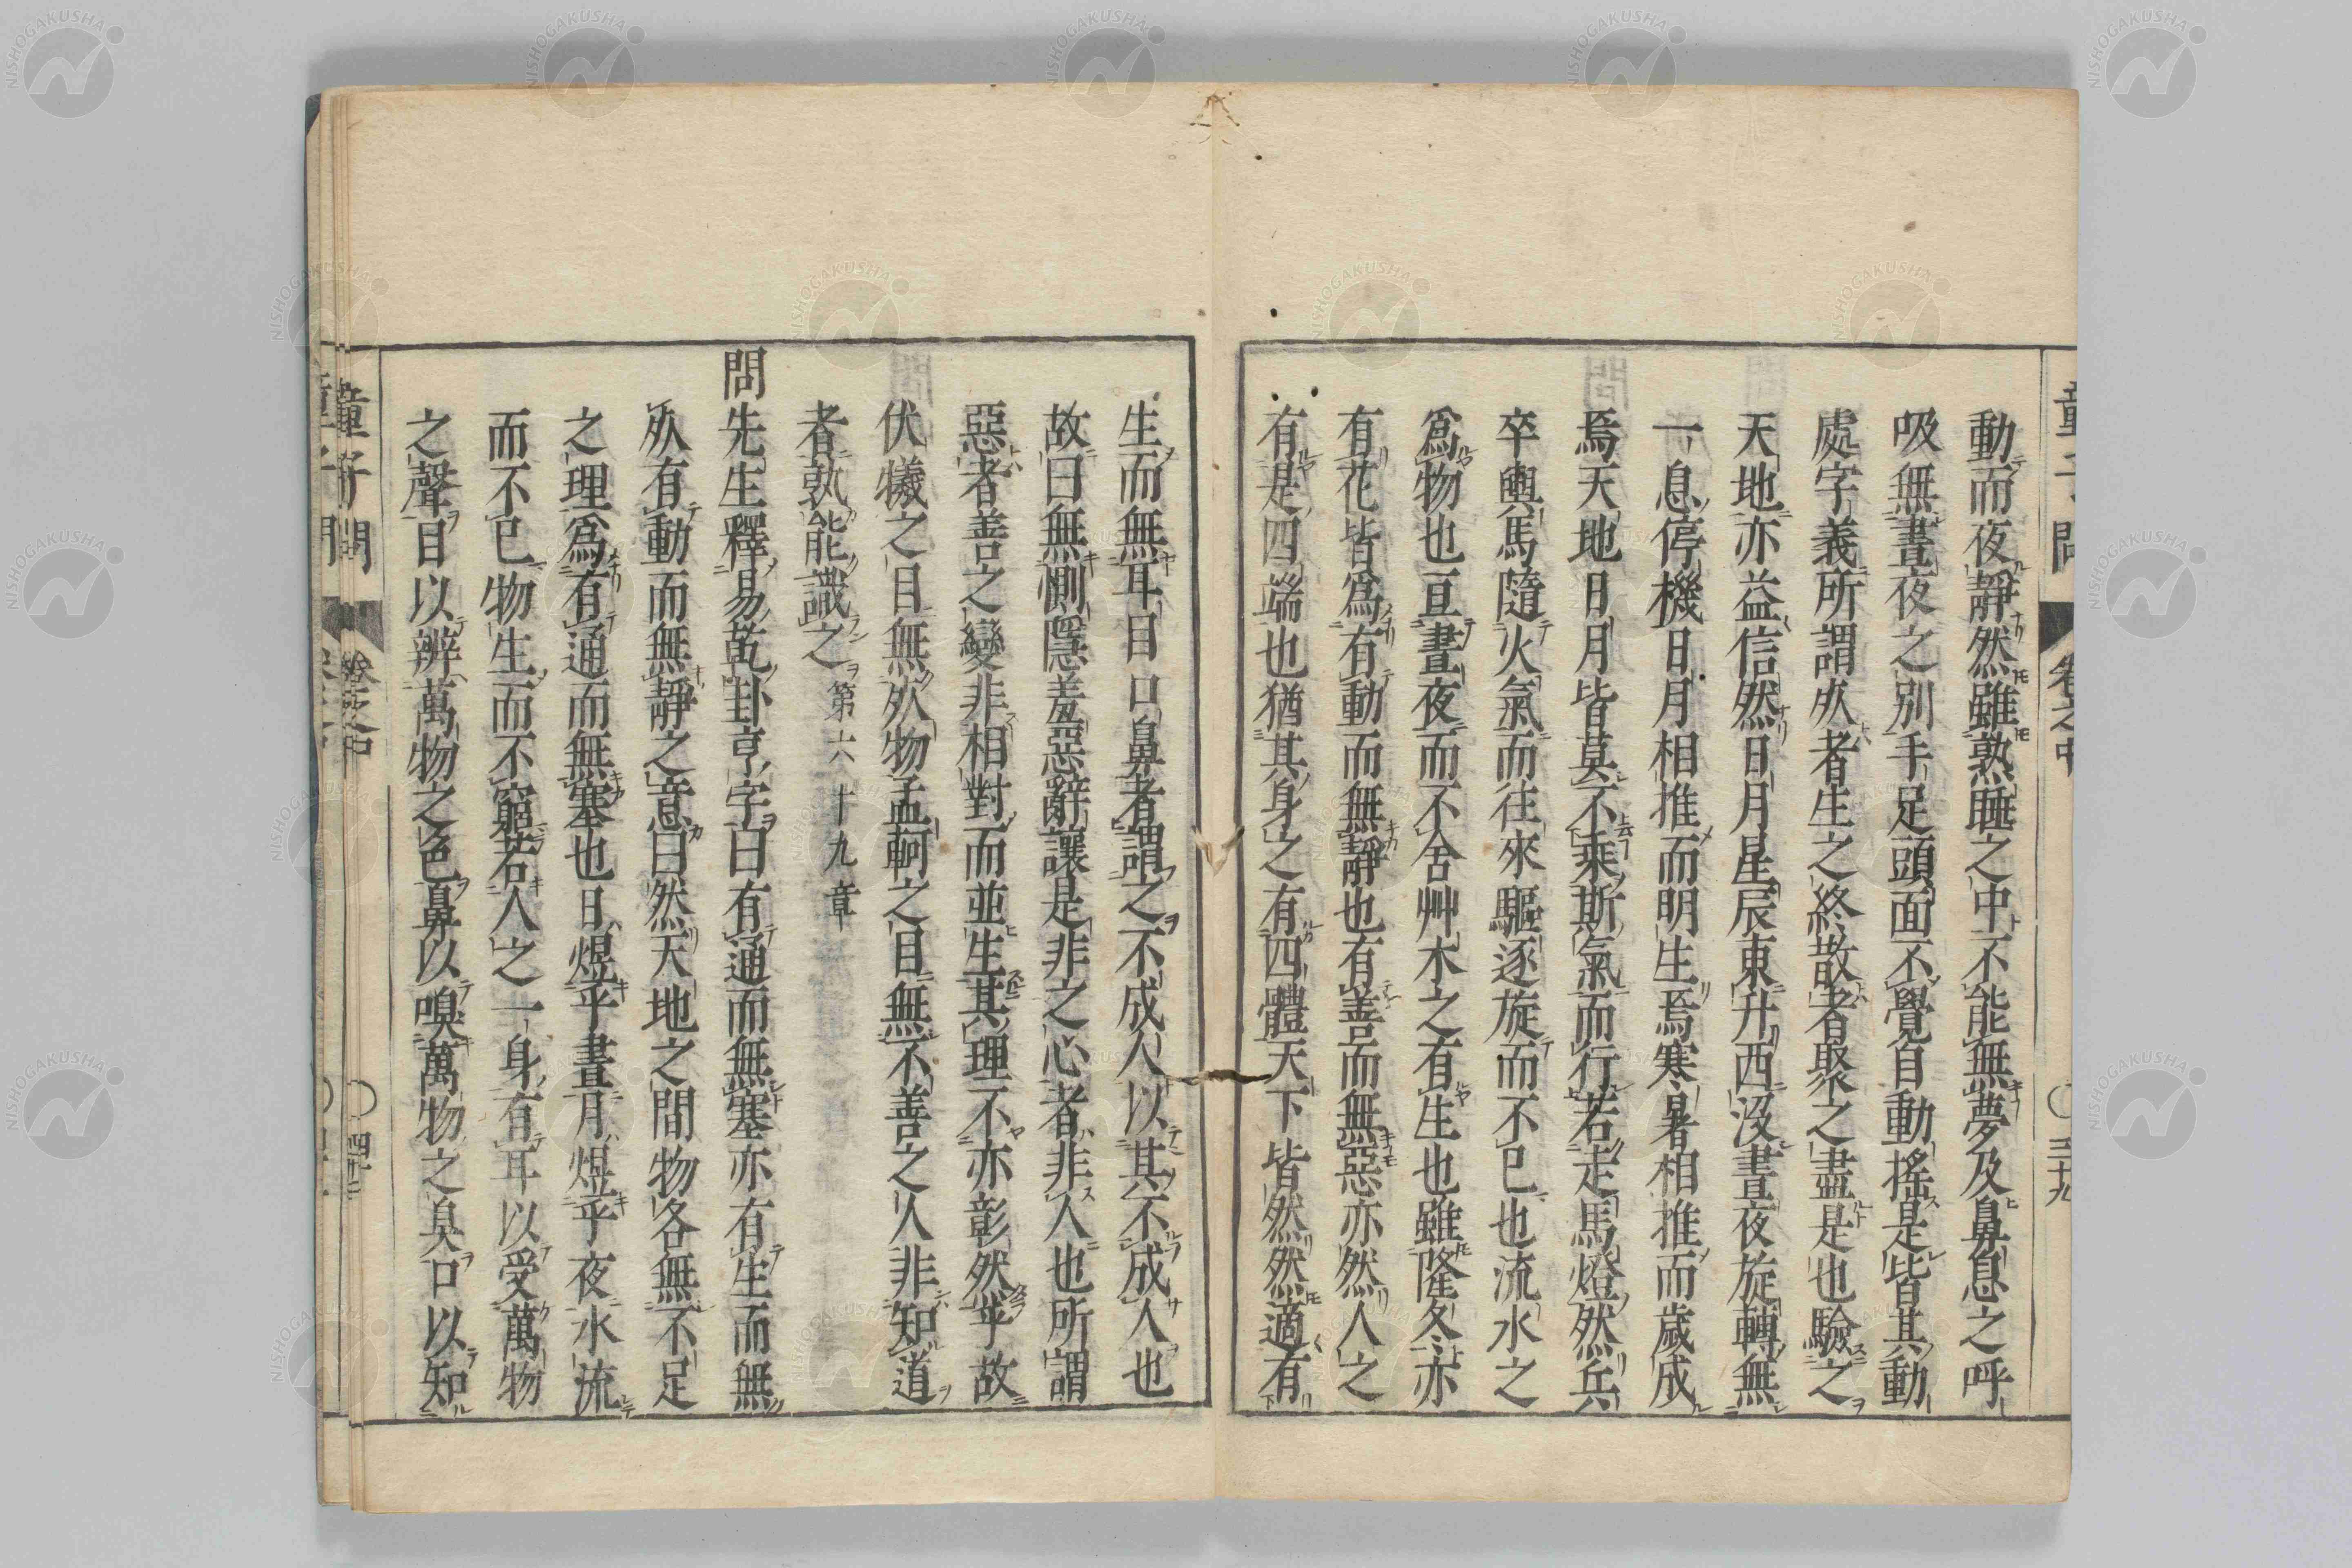 動而夜靜然雖熟睡之中不能無夢及鼻息之呼
吸無晝夜之別手足頭面不覺自動搖是皆其動
處字義所謂死者生之終散者聚之盡是也驗之
天地亦益信然日月星辰東升西沒晝夜旋轉無
一息停機日月相推而明生焉寒暑相推而歲成
焉天地日月皆莫不乘斯氣而行若走馬燈然兵
卒輿馬隨火氣而往來驅逐旋而不已也流水之
爲物也亘晝夜而不舍艸木之有生也雖隆冬亦
有花皆爲有動而無靜也有善而無惡亦然人之
有是四端也猶其身之有四體天下皆然然適有
生而無耳目口鼻者謂之不成人以其不成人也
故曰無惻隱羞惡辭讓是非之心者非人也所謂
惡者善之變非相對而並生其理不亦彰然乎故
伏犧之目無死物孟軻之目無不善之人非知道
者孰能識之 第六十九章
問先生釋易乾卦亨字曰有通而無塞亦有生而無
死有動而無靜之意曰然天地之間物各無不足
之理爲有通而無塞也日煜乎晝月煜乎夜水流
而不已物生而不窮若人之一身有耳以受萬物
之聲目以辨萬物之色鼻以嗅萬物之臭口以知
童子問 卷之中 四十二
童子問 卷之中 三十九